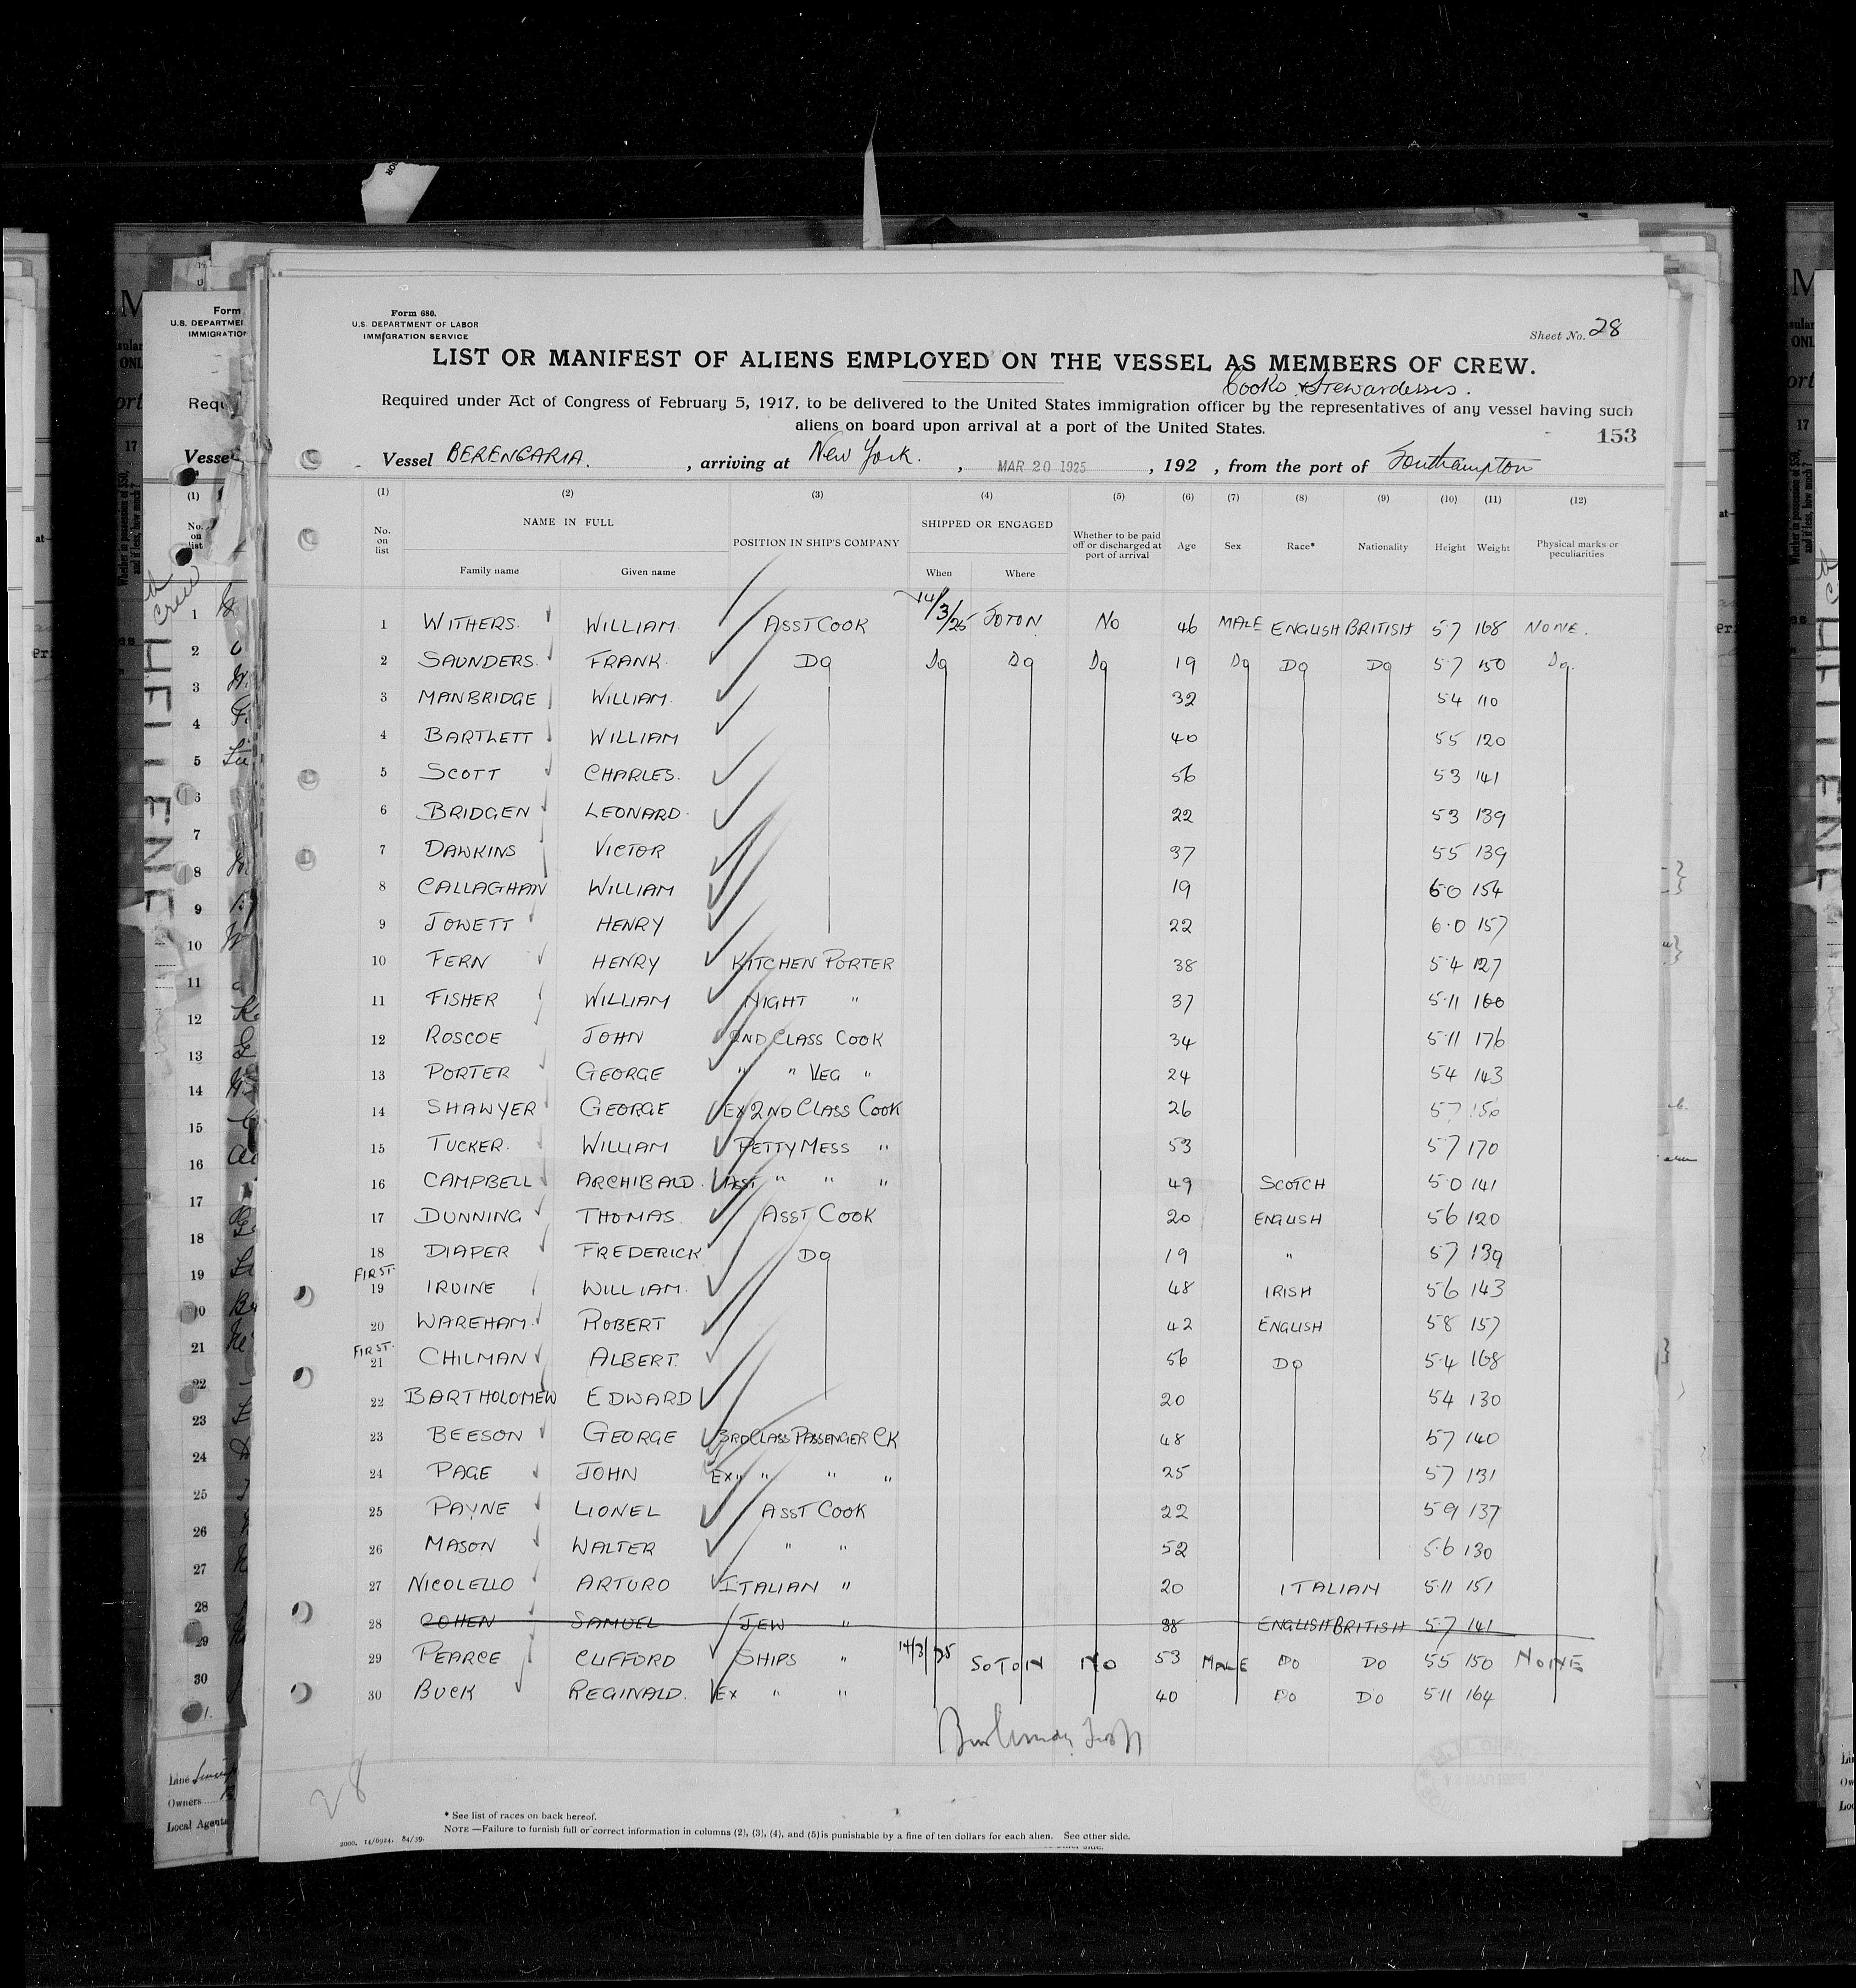 Form 680.
U.S. DEPARTMENT OF LABOR
IMMIGRATION SERVICE
Sheet No. 28
LIST OR MANIFEST OF ALIENS EMPLOYED ON THE VESSEL AS MEMBERS OF CREW.
Cooks & Stewardesses.
Required under Act of Congress of February 5, 1917, to be delivered to the United States immigration officer by the representatives of any vessel having such
aliens on board upon arrival at a port of the United States.
153
Vessel BERENGARIA. , arriving at New York. , MAR 20 1925 , 192 , from the port of Southampton
(1) (2) (3) (4) (5) (6) (7) (8) (9) (10) (11) (12)
No. on list NAME IN FULL POSITION IN SHIP'S COMPANY SHIPPED OR ENGAGED Whether to be paid off or discharged at port of arrival Age Sex Race* Nationality Height Weight Physical marks or peculiarities
Family name Given name When Where
1 WITHERS. WILLIAM. ASST COOK 14/3/25 SOTON No 46 MALE ENGLISH BRITISH 5 7 168 NONE.
2 SAUNDERS. FRANK. Do Do Do Do 19 Do Do Do 5 7 150 Do.
3 MANBRIDGE WILLIAM. 32 5 4 110
4 BARTLETT WILLIAM 40 5 5 120
5 SCOTT CHARLES. 56 5 3 141
6 BRIDGEN LEONARD. 22 5 3 139
7 DAWKINS VICTOR 37 5 5 139
8 CALLAGHAN WILLIAM 19 6 0 154
9 JOWETT HENRY 22 6·0 157
10 FERN HENRY KITCHEN PORTER 38 5 4 127
11 FISHER WILLIAM NIGHT " 37 5·11 160
12 ROSCOE JOHN 2ND CLASS COOK 34 5·11 176
13 PORTER GEORGE " " VEG " 24 5 4 143
14 SHAWYER GEORGE EX 2ND CLASS COOK 26 5 7 150
15 TUCKER. WILLIAM PETTY MESS " 53 5·7 170
16 CAMPBELL ARCHIBALD. ASST " " " 49 SCOTCH 5·0 141
17 DUNNING THOMAS. ASST COOK 20 ENGLISH 5 6 120
18 DIAPER FREDERICK Do 19 " 5 7 139
FIRST.
19 IRVINE WILLIAM. 48 IRISH 5 6 143
20 WAREHAM. ROBERT 42 ENGLISH 5 8 157
FIRST.
21 CHILMAN ALBERT. 56 Do 5·4 168
22 BARTHOLOMEW EDWARD 20 5 4 130
23 BEESON GEORGE 3RD CLASS PASSENGER CK 48 5 7 140
24 PAGE JOHN EX " " " " 25 5 7 131
25 PAYNE LIONEL ASST COOK 22 5 9 137
26 MASON WALTER " " 52 5·6 130
27 NICOLELLO ARTURO ITALIAN " 20 ITALIAN 5·11 151
28 COHEN SAMUEL JEW " 38 ENGLISH BRITISH 5·7 141
29 PEARCE CLIFFORD SHIPS " 14/3/25 SOTON NO 53 MALE Do Do 5 5 150 NONE
30 BUCK REGINALD. EX " " 40 Do Do 5·11 164
28
* See list of races on back hereof.
NOTE —Failure to furnish full or correct information in columns (2), (3), (4), and (5) is punishable by a fine of ten dollars for each alien. See other side.
2000. 14/6924. 84/39.
Form
U.S. DEPARTME
IMMIGRATIO
Requ
Vesse
(1)
No. on list
HELLENE
1
2
3
4
5
6
7
8
9
10
11
12
13
14
15
16
17
18
19
20
21
22
23
24
25
26
27
28
29
30
Line
Owners
Local Agents